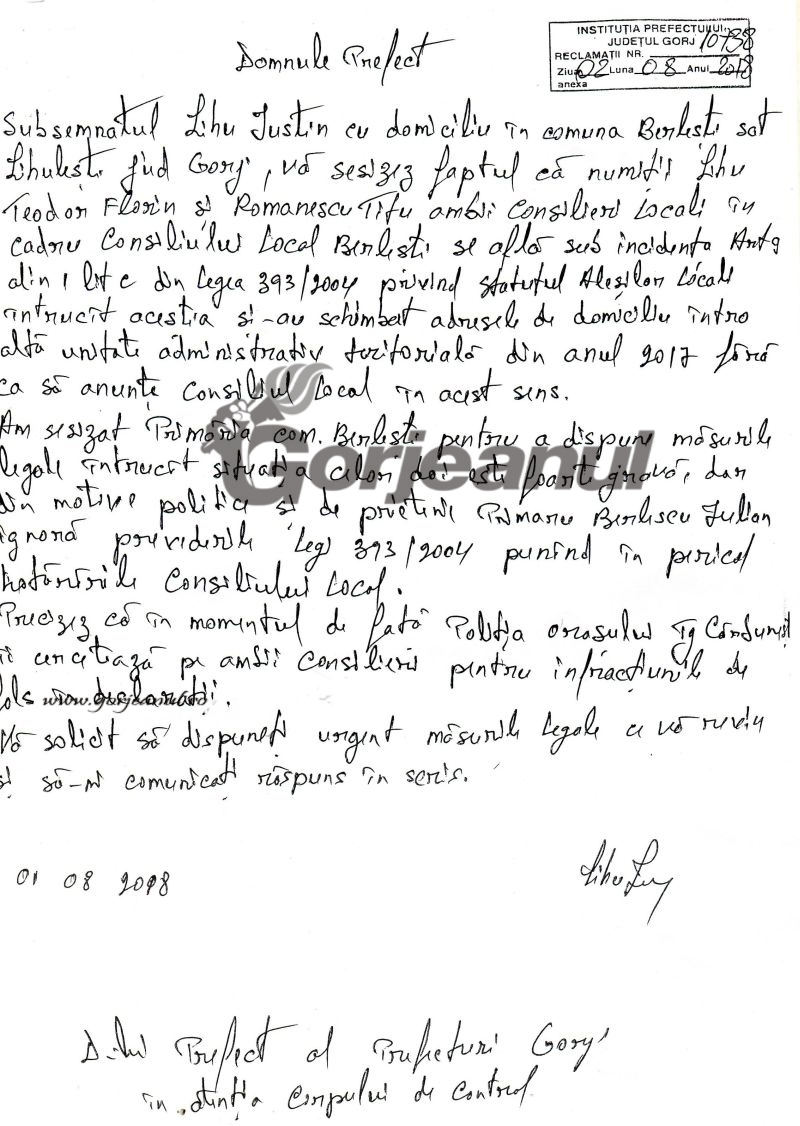 INSTITUȚIA PREFECTULUI
JUDEȚUL GORJ
RECLAMAȚII NR. 10738
Ziua 02 Luna 08 Anul 2018
anexa
Domnule Prefect
Subsemnatul Lihu Justin cu domiciliu în comuna Berlești sat
Lihulești jud Gorj, vă sesizez faptul că numiții Lihu
Teodor Florin și Romanescu Titu ambii Consilieri Locali în
cadru Consiliului Local Berlești se află sub incidența Art 9
alin 1 lit c din Legea 393/2004 privind statutul Aleșilor Locali
întrucît aceștia și-au schimbat adresele de domiciliu întro
altă unitate administrativ teritorială din anul 2017 fără
ca să anunțe Consiliul Local în acest sens.
Am sesizat Primăria com. Berlești pentru a dispune măsurile
legale întrucît situația celor doi este foarte gravă, dar
din motive politice și de prietenie Primaru Berlescu Iulian
ignoră prevederile Legi 393/2004 punînd în pericol
hotărîrile Consiliului Local.
Precizez că în momentul de față Poliția orașului Tg Cărbunești
îi cercetează pe ambii Consilieri pentru infracțiunile de
fals în declarații.
Vă solicit să dispuneți urgent măsurile legale ce vă revin
și să-mi comunicați răspuns în scris.
01 08 2018
Lihu
D-lui Prefect al Prefecturi Gorj
în atenția Corpului de Control
Gorjeanul
www.gorjeanul.ro